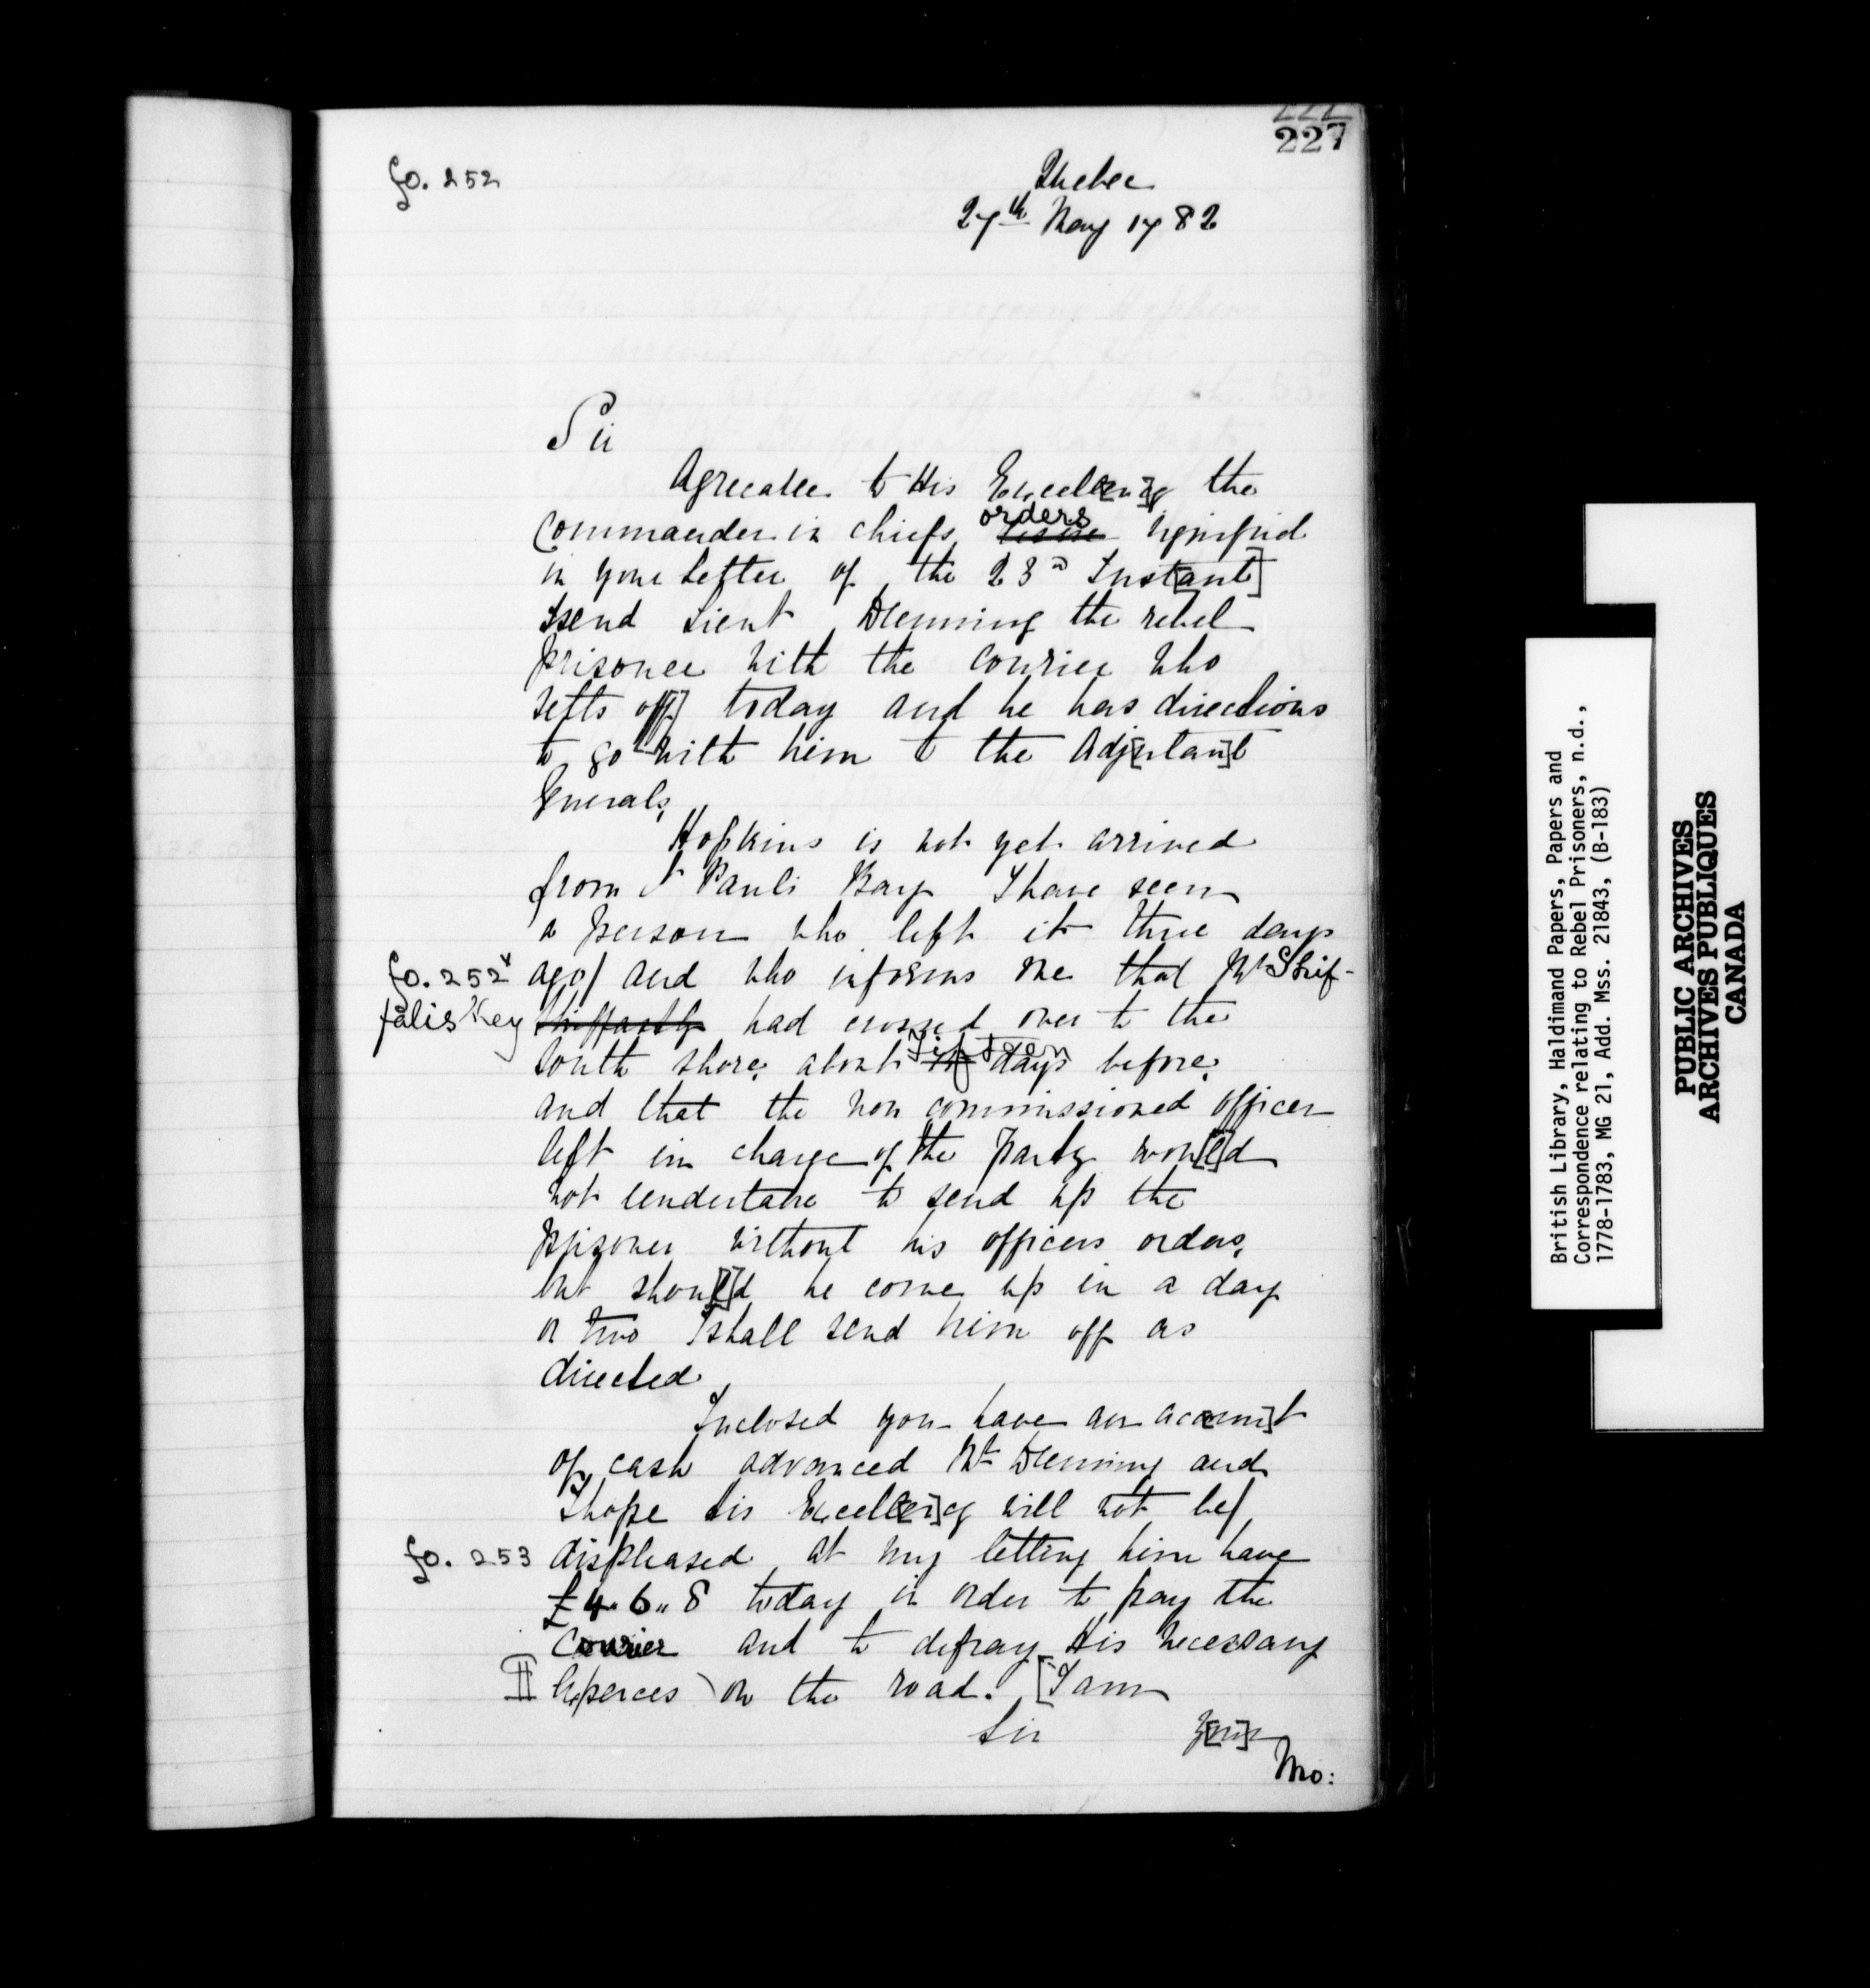 222
227
fo. 252
Quebec
27th May 1782
Sir
Agreeable to His Excell[en]cy the
Commander in chiefs orders signified
in your Letter of the 23d Inst[ant]
I send Lieut Blenning the rebel
prisoner with the courier who
setts off[f] today and he has directions
to go with him to the Adj[utan]t
Generals,
Hopkins is not yet arrived
from St Pauls Bay I have seen
a person who left it three days
fo. 252v ago/ and who informs me that Mr Shif-
falisKey had crossed over to the
South shore, about fifteen days before,
and that the non commissioned officer
left in charge of the party wou[l]d
not undertake to send up the
prizoner without his officers orders,
but shou[l]d he come up in a day
or two I shall send him off as
directed
Inclosed you have an acc[oun]t
of cash advanced Mr Blenning and
I hope his Excell[en]cy will not be/
fo. 253 displeased at my letting him have
£4.6.,8 today in order to pay the
Courier and to defray His necessary
Expences on the road. [I am
Sir Y[ou]r
Mo:
British Library, Haldimand Papers, Papers and
Correspondence relating to Rebel Prisoners, n.d.,
1778-1783, MG 21, Add. Mss. 21843, (B-183)
PUBLIC ARCHIVES
ARCHIVES PUBLIQUES
CANADA